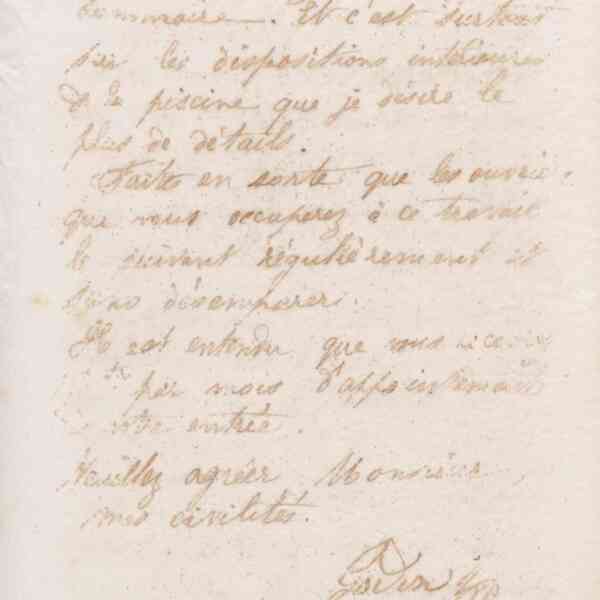 sommaire. Et c'est surtout
sur les dispositions intérieures
de la piscine que je désire le
plus de détails.
Faites en sorte que les ouvriers
que vous occuperez à ce travail
le suivent régulièrement et
sans désemparer.
Il est entendu que vous
par mois d'appointements
votre entrée.
Veuillez agréer Monsieur,
mes civilités.
Godin